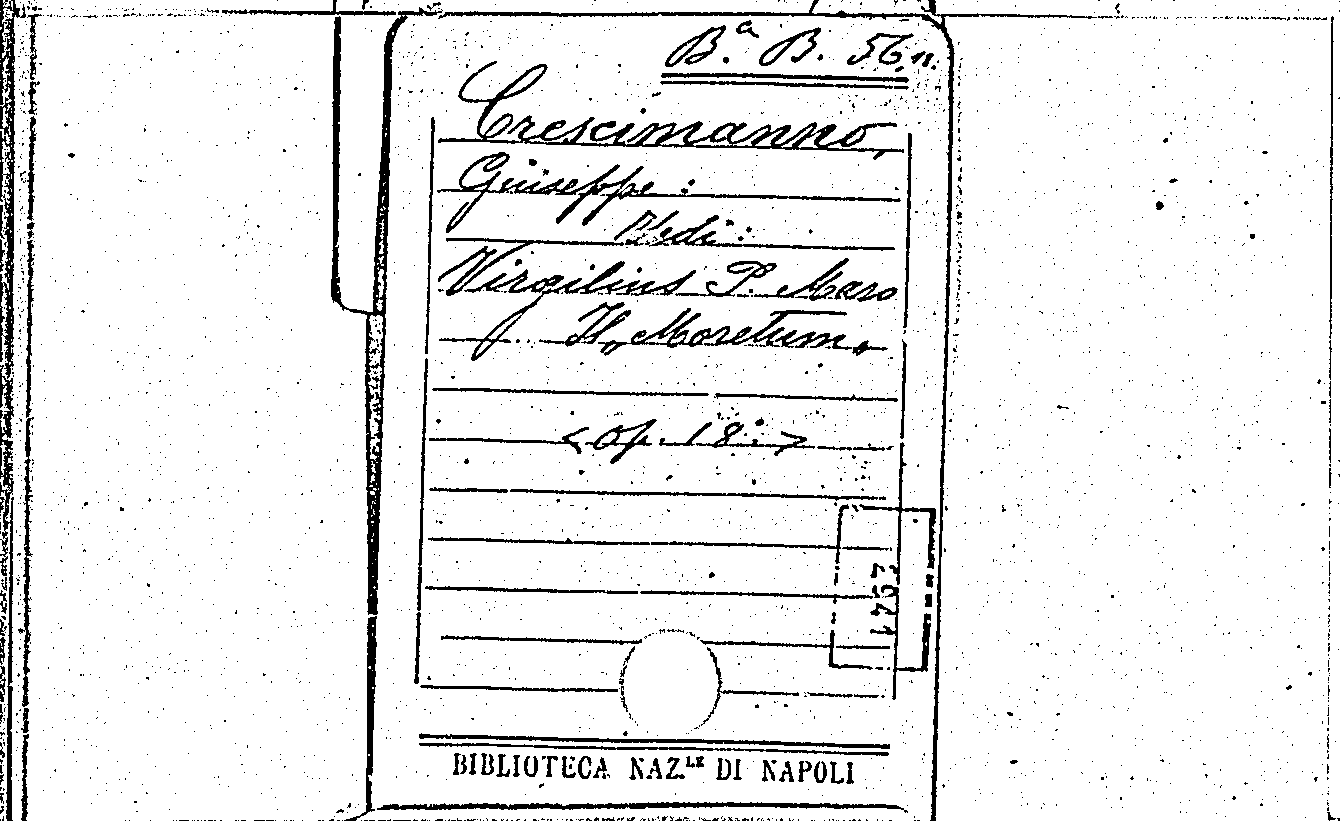 Bª. B. 56.
Crescimanno,
Giuseppe :
Vedi :
Virgilius P. Maro
Il „Moretum„
<op. 18. >
BIBLIOTECA NAZ.LE DI NAPOLI